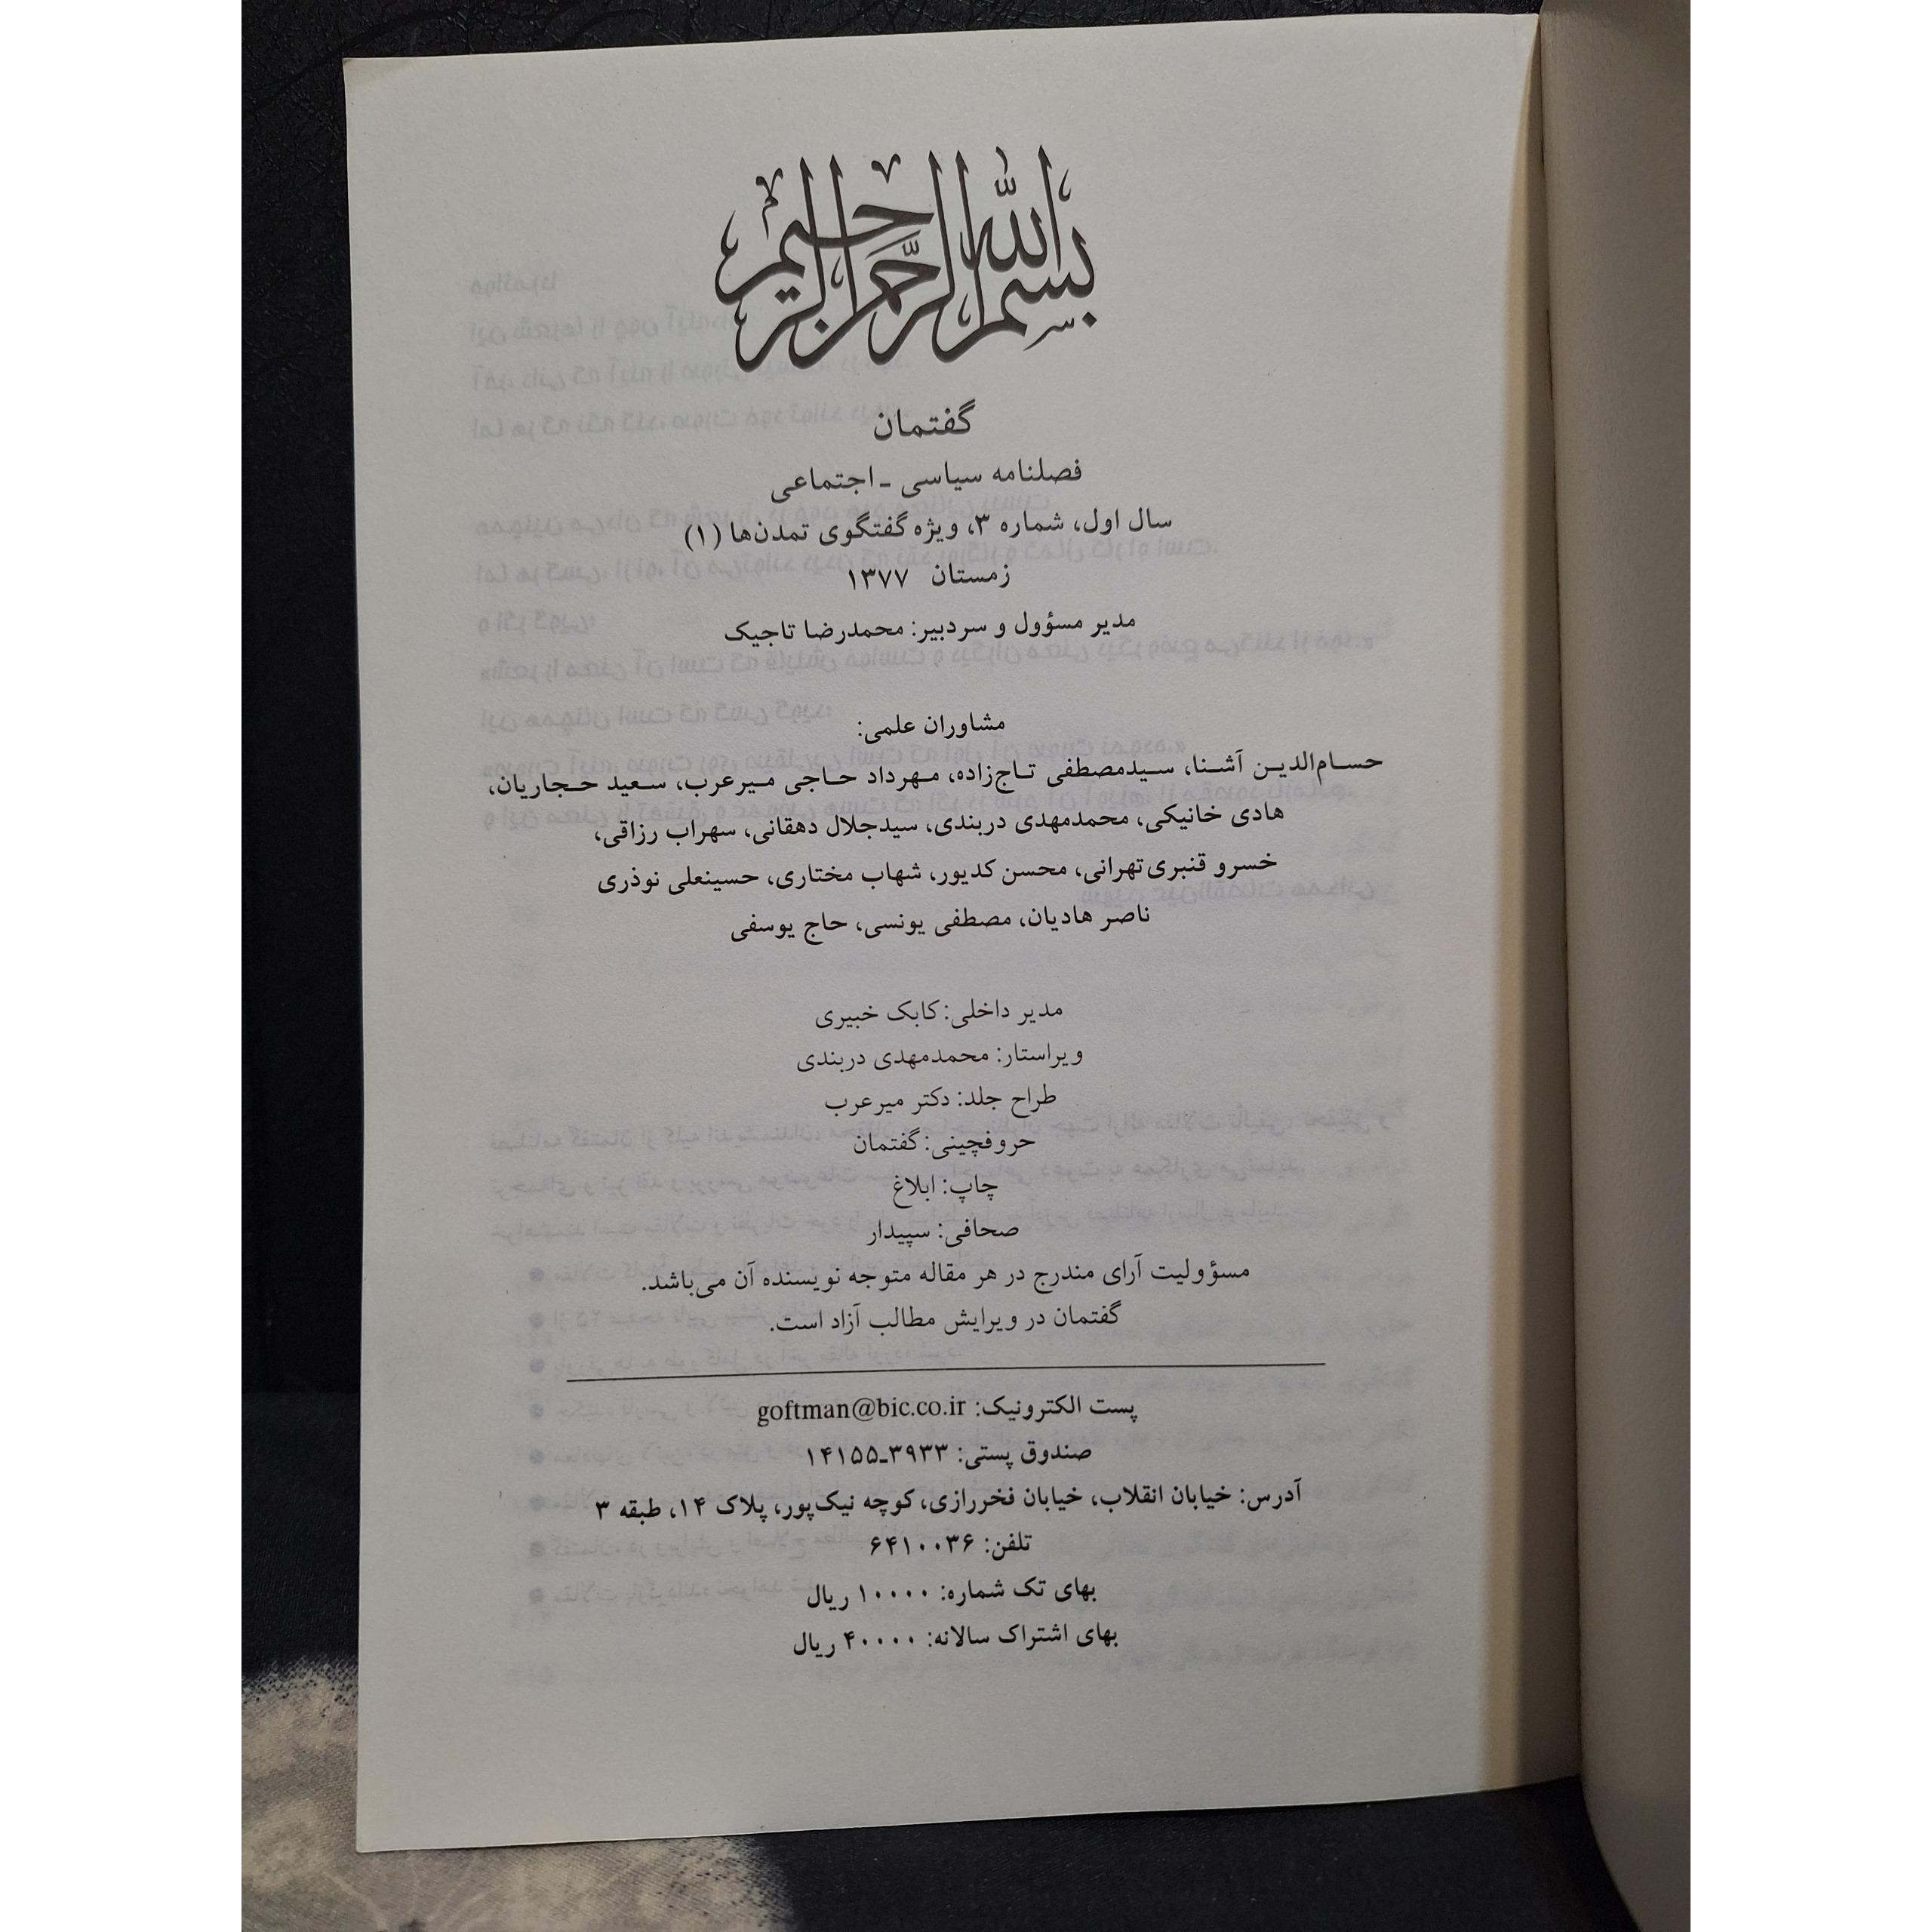 بسم الله الرحمن الرحیم
گفتمان
فصلنامه سیاسی ـ اجتماعی
سال اول، شماره ۳، ویژه گفتگوی تمدن‌ها (۱)
زمستان ۱۳۷۷
مدیر مسؤول و سردبیر: محمدرضا تاجیک
مشاوران علمی:
حسام‌الدین آشنا، سیدمصطفی تاج‌زاده، مهرداد حاجی میرعرب، سعید حجاریان،
هادی خانیکی، محمدمهدی دربندی، سیدجلال دهقانی، سهراب رزاقی،
خسرو قنبری‌تهرانی، محسن کدیور، شهاب مختاری، حسینعلی نوذری
ناصر هادیان، مصطفی یونسی، حاج یوسفی
مدیر داخلی: کابک خبیری
ویراستار: محمدمهدی دربندی
طراح جلد: دکتر میرعرب
حروفچینی: گفتمان
چاپ: ابلاغ
صحافی: سپیدار
مسؤولیت آرای مندرج در هر مقاله متوجه نویسنده آن می‌باشد.
گفتمان در ویرایش مطالب آزاد است.
پست الکترونیک: goftman@bic.co.ir
صندوق پستی: ۳۹۳۳ـ۱۴۱۵۵
آدرس: خیابان انقلاب، خیابان فخررازی، کوچه نیک‌پور، پلاک ۱۴، طبقه ۳
تلفن: ۶۴۱۰۰۳۶
بهای تک شماره: ۱۰۰۰۰ ریال
بهای اشتراک سالانه: ۴۰۰۰۰ ریال